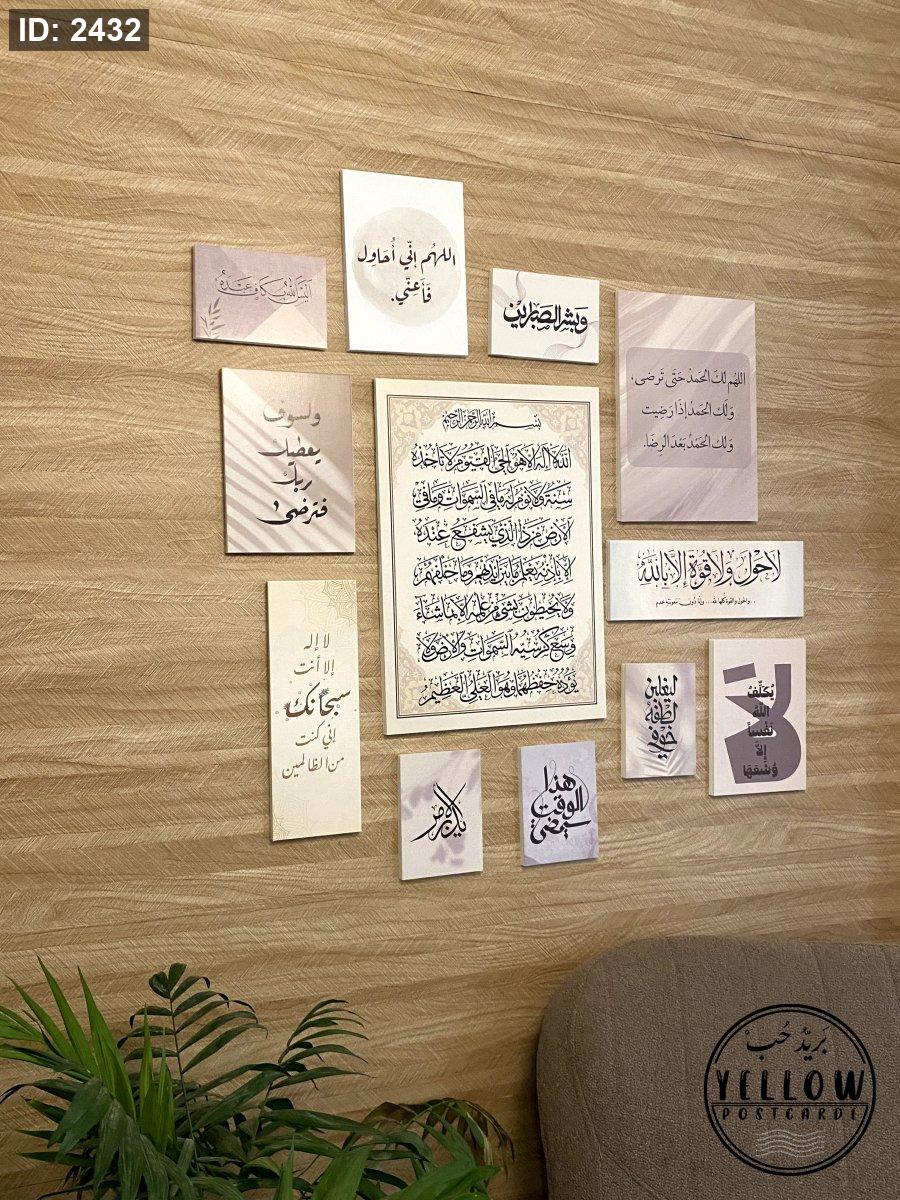 ID: 2432
اللهُم إنّي أُحَاوِل
فَأَعِنّي.
أليسَ اللهُ بِكافٍ عَبْدَهُ
وَبَشِّرِ الصَّابِرِينَ
اللهُم لكَ الحَمدُ حَتّى تَرضى،
وَلكَ الحَمدُ إذَا رَضِيت
وَلكَ الحَمدُ بَعدَ الرِضَا.
ولسوف
يعطيك
ربك
فترضى
بِسْمِ اللهِ الرَّحْمٰنِ الرَّحِيمِ
اللَّهُ لَا إِلَٰهَ إِلَّا هُوَ الْحَيُّ الْقَيُّومُ لَا تَأْخُذُهُ
سِنَةٌ وَلَا نَوْمٌ لَهُ مَا فِي السَّمَوَاتِ وَمَا فِي
الْأَرْضِ مَن ذَا الَّذِي يَشْفَعُ عِندَهُ
إِلَّا بِإِذْنِهِ يَعْلَمُ مَا بَيْنَ أَيْدِيهِمْ وَمَا خَلْفَهُمْ
وَلَا يُحِيطُونَ بِشَيْءٍ مِنْ عِلْمِهِ إِلَّا بِمَا شَاءَ
وَسِعَ كُرْسِيُّهُ السَّمَوَاتِ وَالْأَرْضَ وَلَا
يَؤُودُهُ حِفْظُهُمَا وَهُوَ الْعَلِيُّ الْعَظِيمُ
لَا حَوْلَ وَلَا قُوَّةَ إِلَّا بِاللَّهِ
لا إله
إلا أنت
سبحانك
إني كنت
من الظالمين
ليغلبن
لطفه
خوفي
لا
يُكَلِّفُ
اللهُ
نَفْساً
إِلَّا
وُسْعَهَا
يدبر الأمر
هذا
الوقت
سيمضي
بَرِيدُ حُبْ
YELLOW
POSTCARDE